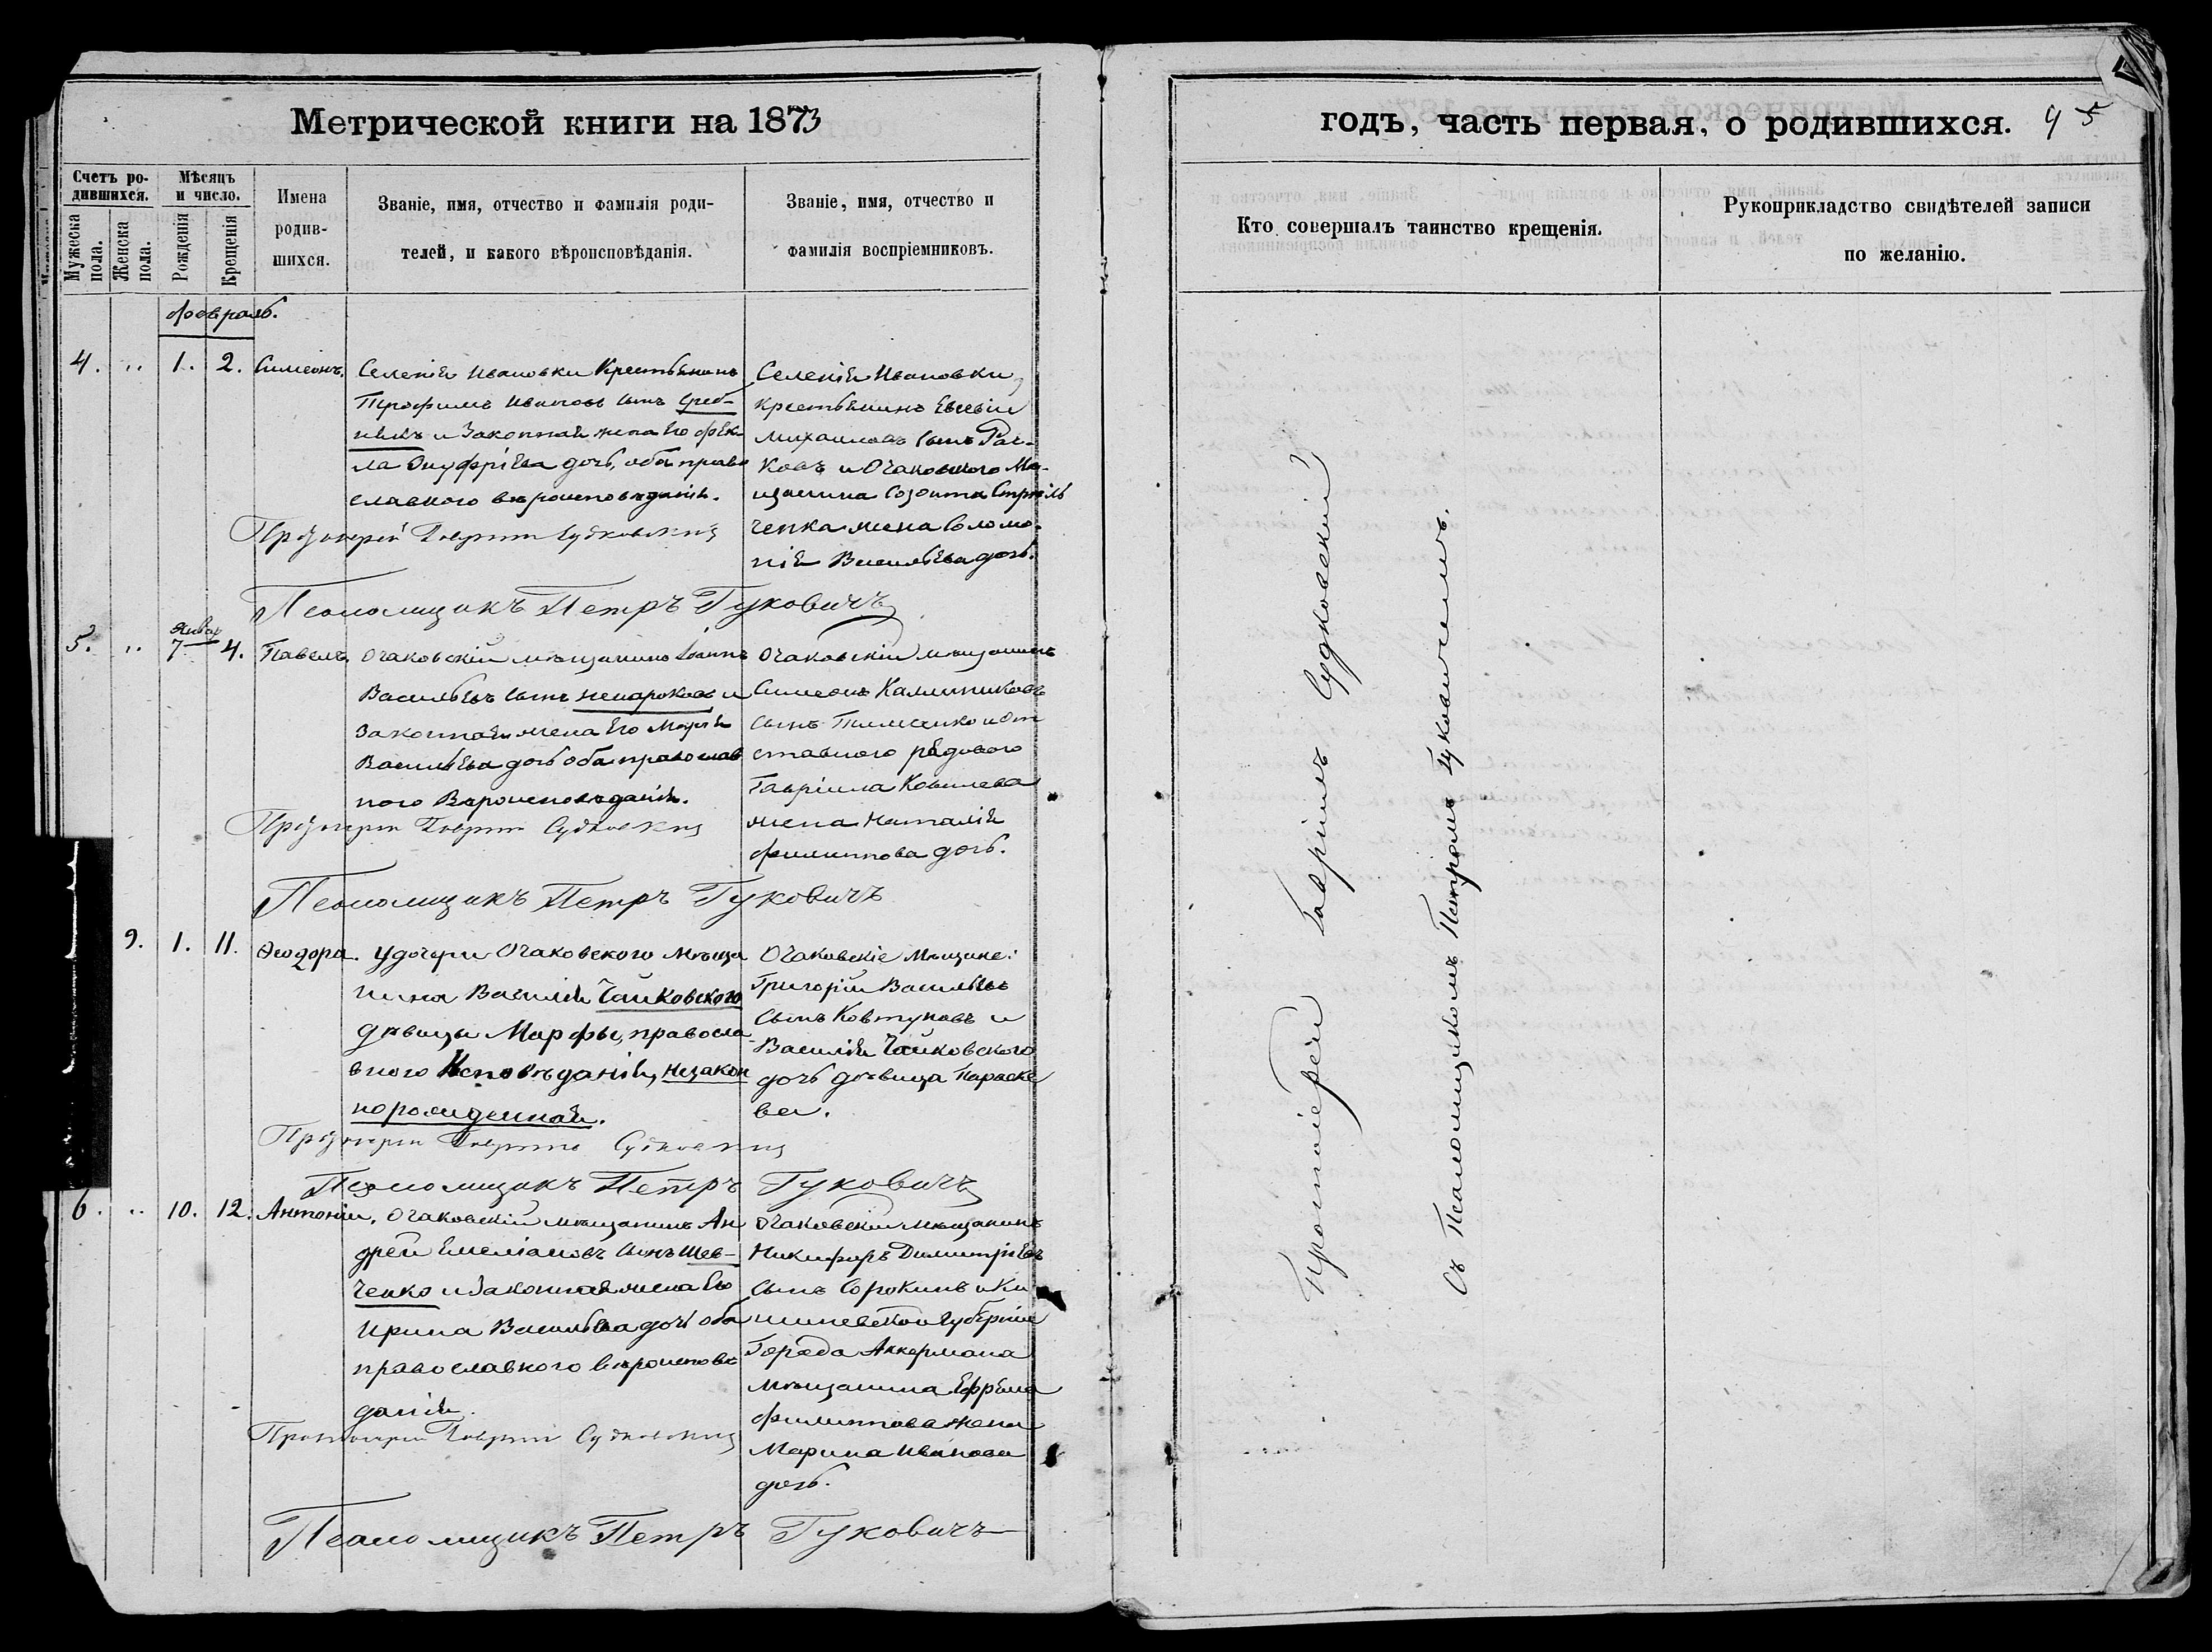 Метрической книги на 1873
Счетъ ро-
дившихся.
Мѣсяцъ
и число.
Мужеска
пола.
Женска
пола.
Рожденія
Крещенія
Имена
родив-
шихся.
Званіе, имя, отчество и фамилія роди-
телей, и какого вѣроисповѣданія.
Званіе, имя, отчество и
фамилія воспріемниковъ.
Февраль.
4. „ 1. 2. Симеонъ.
Селенія Ивановки Крестьянинъ
Трофимъ Ивановъ сынъ Греб-
и Законная жена Его Ѳек-
ла Онуфріева дочь, оба право
славного вѣроисповѣданія.
Протоіерей Гавріилъ Судковскій
Селенія Ивановки
крестьянинъ Евсевій
Михаиловъ сынъ Рач-
ковъ и Очаковского Мѣ-
щанина Созонта Стрѣль
ченка жена Соломо-
нія Васильева дочь.
Псаломщикъ Петръ Гуковичъ
5. „ Январ 7 4. Павелъ.
Очаковскій мѣщанинъ Іоаннъ
Васильевъ сынъ Ненароковъ и
Законная жена Его Марія
Васильева дочь оба православ
ного Вѣроисповѣданія.
Протоіерей Гавріилъ Судковскій
Очаковскій мѣщанинъ
Симеонъ Калинниковъ
сынъ Тимченко и От
ставного рядового
Гавріила Ковилева
жена Наталія
Филиппова дочь.
Псаломщикъ Петръ Гуковичъ
9. 1. 11. Ѳеодора.
У дочери Очаковского Мѣща
нина Василія Чайковского
дѣвицы Марфы, правосла
вного Исповѣданія, Незакон
норожденная.
Протоіерей Гавріилъ Судковскій
Очаковскіе Мѣщане:
Григорій Васильевъ
сынъ Ковтуновъ и
Василія Чайковского
дочь дѣвица Параске
ва.
Псаломщикъ Петръ Гуковичъ
6. „ 10. 12. Антоній.
Очаковскій мѣщанинъ Ан
дрей Емеліановъ сынъ Шев-
ченко и Законная жена Его
Ирина Васильева дочь оба
православного вѣроисповѣ
данія.
Протоіерей Гавріилъ Судковскій
Очаковскій мѣщанинъ
Никифоръ Димитріевъ
сынъ Сорокинъ и Ки
шиневской Губерніи
Города Аккермана
мѣщанина Ефрема
Филиппова жена
Марина Иванова
дочь.
Псаломщикъ Петръ Гуковичъ
годъ, часть первая, о родившихся. 45
Кто совершалъ таинство крещенія.
Рукоприкладство свидѣтелей записи
по желанію.
Протоіерей Гавріилъ Судковскій
Съ Псаломщикомъ Петромъ Гуковичемъ.